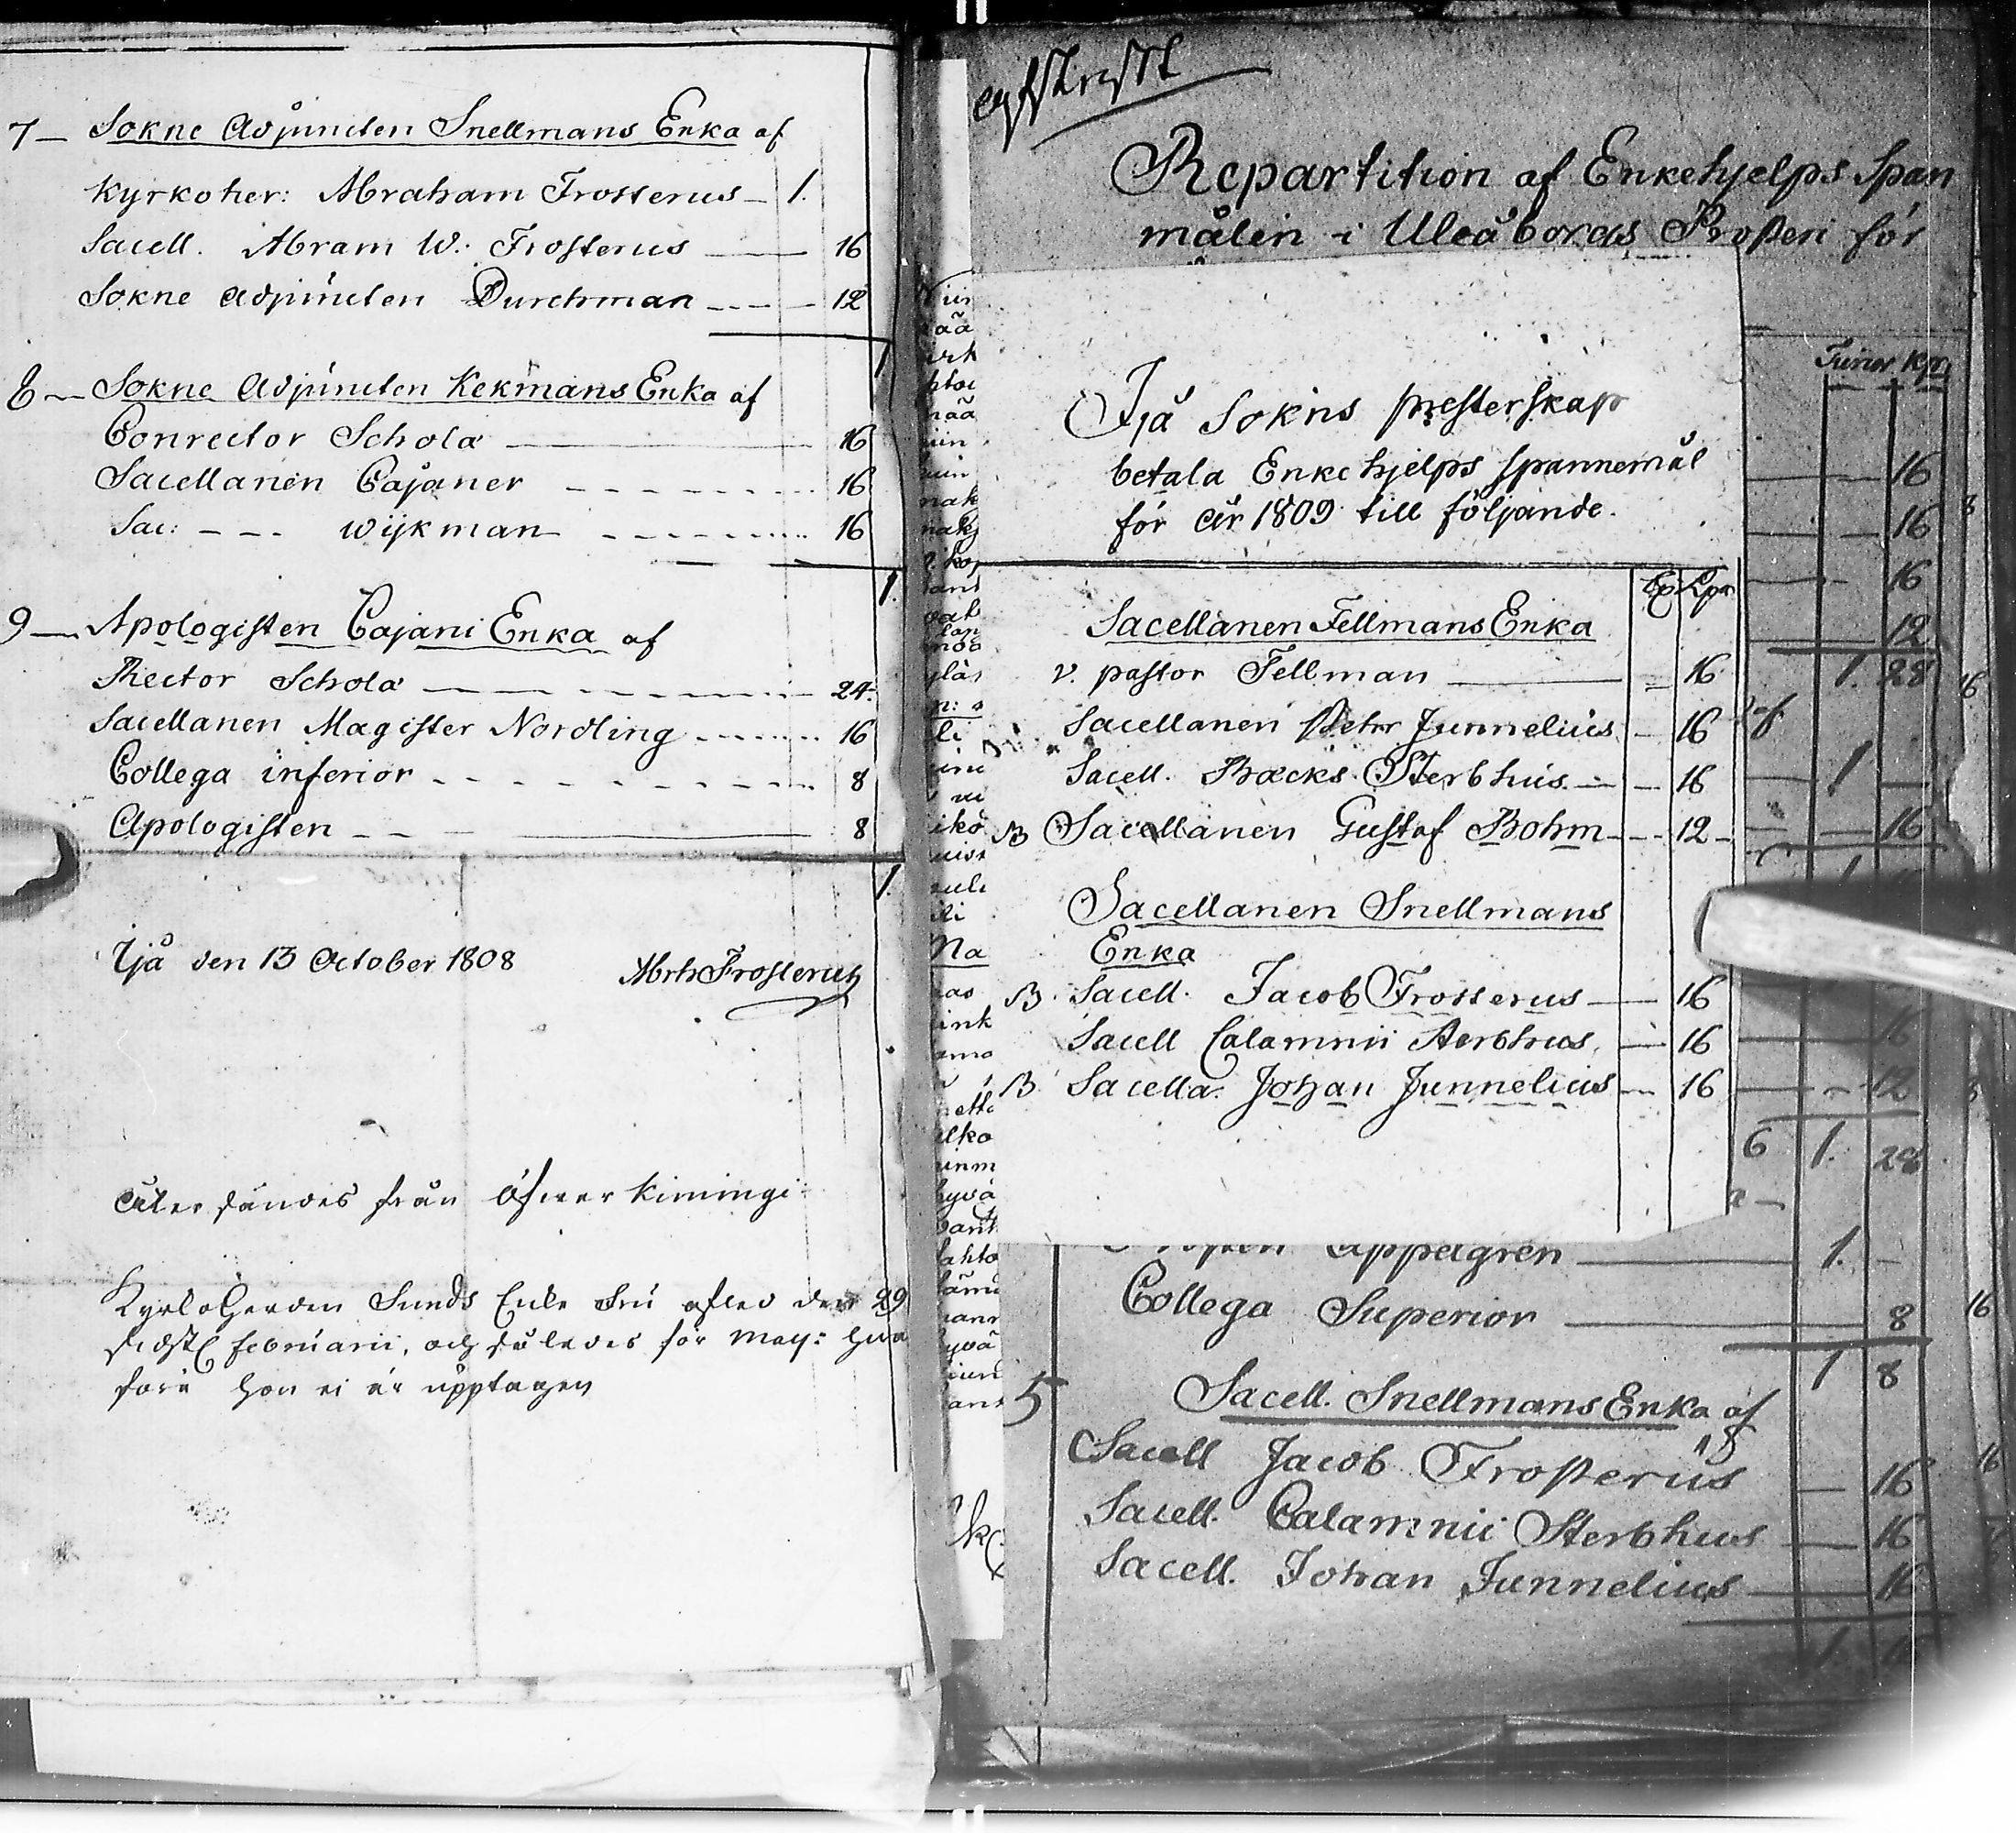 7 — Sokne Adjuncten Snellmans Enka af
Kyrkoher: Abraham Frosterus — 1.
Sacell. Abram W: Frosterus — 16
Sokne Adjuncten Durchman — 12
1
8 — Sokne Adjuncten Kekmans Enka af
Conrector Schola — 16
Sacellanen Cajaner — 16
Sac: — Wijkman — 16
1.
9 — Apologisten Cajani Enka af
Rector Schola — 24.
Sacellanen Magister Nordling — 16
Collega inferior — 8
Apologisten — 8
1.
Ijå den 13 October 1808
Abrh Frosterus
Återsändes från Öfwer Kimingi
Kyrkoherden Sunds Enka Fru afled den 29
sidstl Februarii, och således för Maij: hwar
före hon ei är upptagen
Repartition af Enkehjelps Span
målen i Uleåborgs Prosteri för
Tunor Kpr
16
16
16
12
1. 28
af
1 —
16
Ijå Sokns presterskap
betala Enkehjelps spannemål
för år 1809 till följande.
Kpr
Sacellanen Fellmans Enka
v. pastor Fellman — 16
Sacellanen Petter Junnelius — 16
Sacell. Bæcks Sterbhus — 16
B Sacellanen Gustaf Bohm — 12
Sacellanen Snellmans
Enka
B. Sacell. Jacob Frosterus — 16
Sacell Calamnii Sterbhus — 16
B Sacella. Johan Junnelius — 16
12
6 1. 28
Appelgren — 1. —
Collega Superior — 8
1 8
5 Sacell. Snellmans Enka af
Sacell Jacob Frosterus — 16
Sacell. Calamnii Sterbhus — 16
Sacell. Johan Junnelius — 16
1. 16